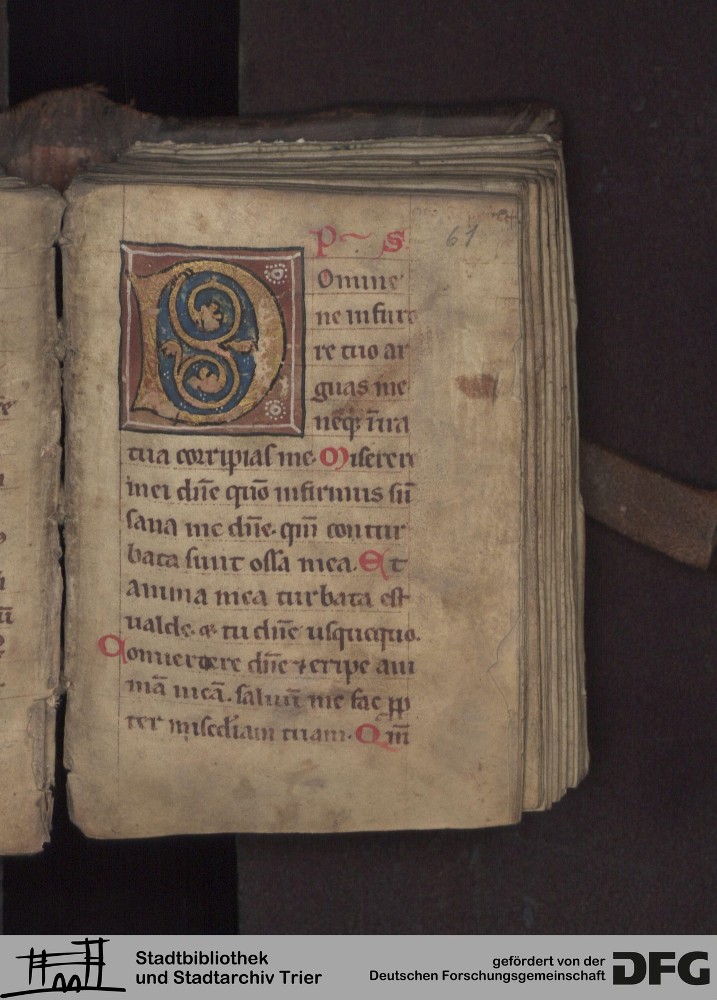 Pͫ S
61
D Omine
ne in furo
re tuo ar
guas me
neq; in ira
tua corripias me. Miserere
mei dñe qm̄ infirmus sū
sana me dñe. qm̄ contur
bata sunt ossa mea. Et
anima mea turbata est
ualde. & tu dñe usquequo.
Conuertere dñe & eripe ani
mā meā. saluū me fac pp
ter misc̄diam tuam. Qm̄
Stadtbibliothek
und Stadtarchiv Trier
gefördert von der
Deutschen Forschungsgemeinschaft
DFG